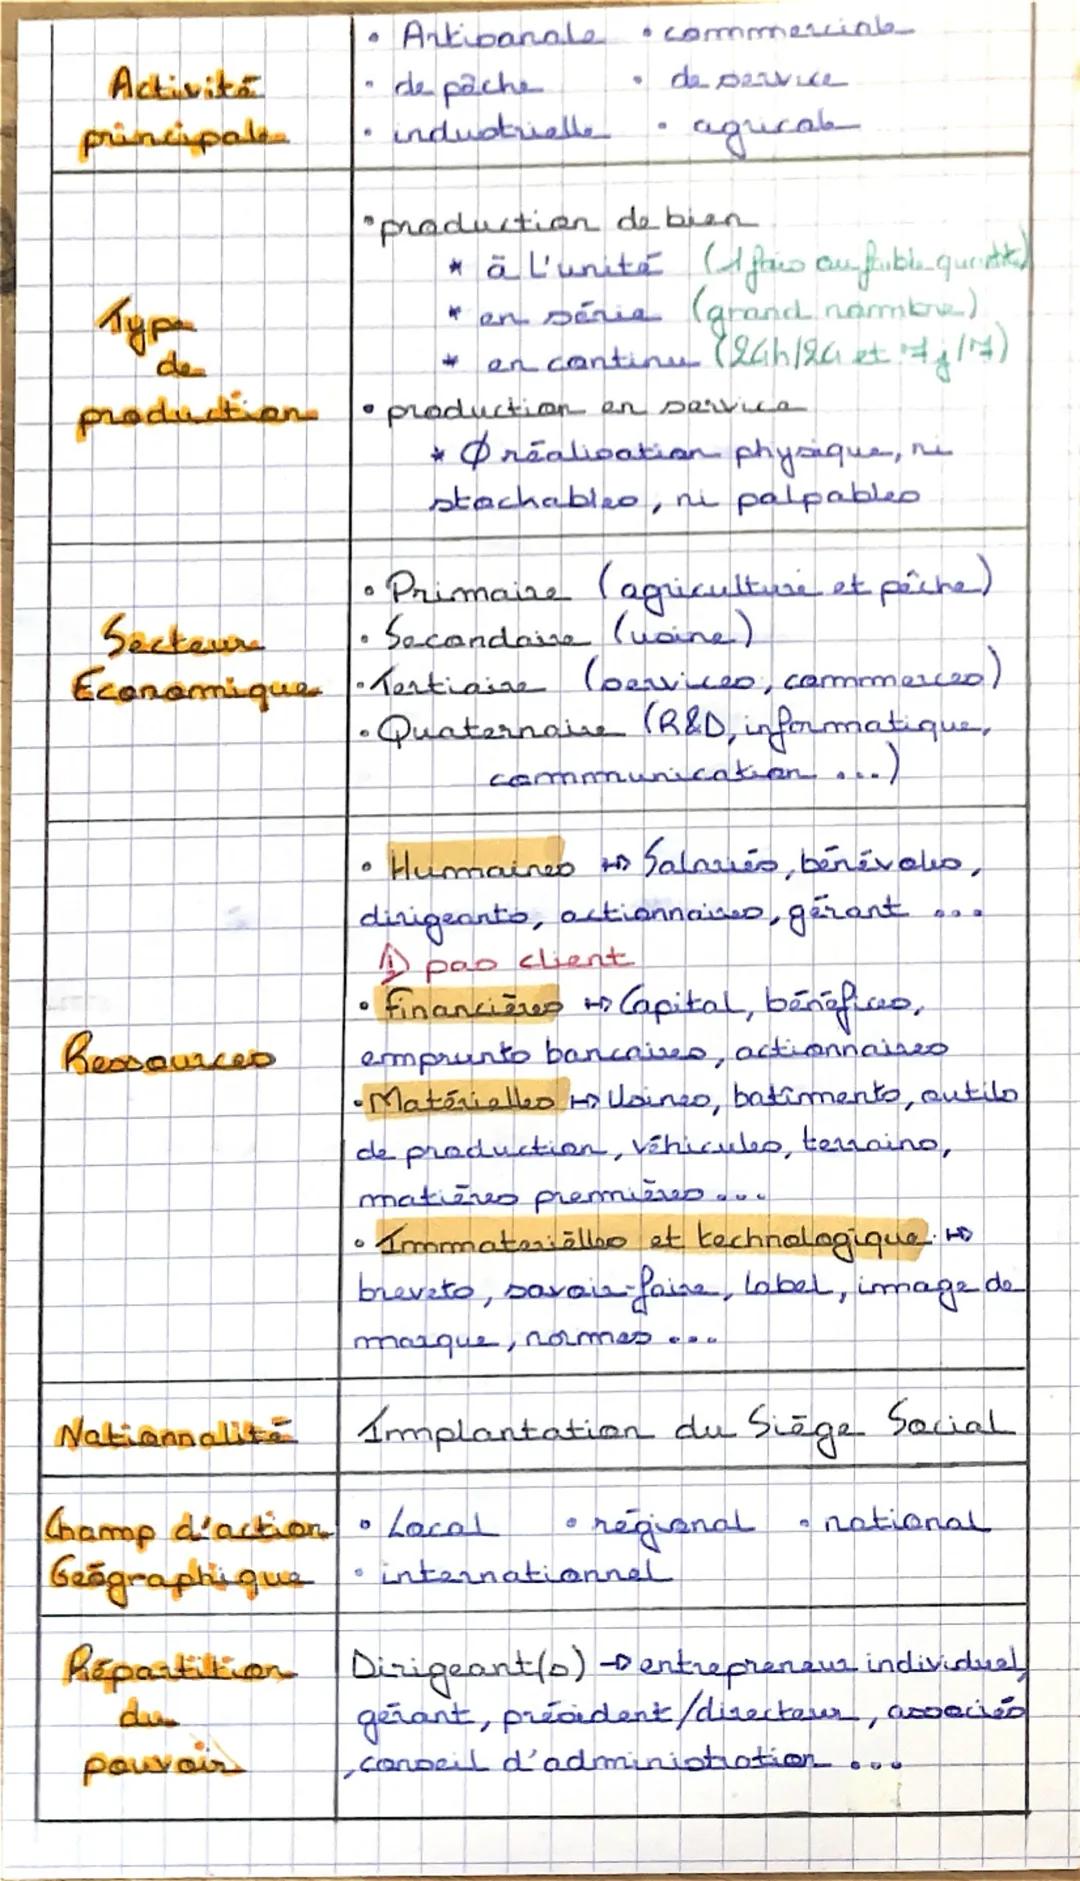 Activité
principale
• Artisanale • commerciale
• de pêche • de service
• industrielle • agricole
Type
de
production
• production de bien
* à l'unité (1 fois ou faible quantité)
* en série (grand nombre)
* en continu (24h/24 et 7j/7)
• production en service
* Ø réalisation physique, ni
stockables, ni palpables
Secteur
Economique
• Primaire (agriculture et pêche)
• Secondaire (usine)
• Tertiaire (services, commerces)
• Quaternaire (R&D, informatique,
communication ...)
Ressources
• Humaines ↦ Salariés, bénévoles,
dirigeants, actionnaires, gérant ...
⚠ pas client
• Financières ↦ Capital, bénéfices,
emprunts bancaires, actionnaires
• Matérielles ↦ Usines, batîments, outils
de production, véhicules, terrains,
matières premières ...
• Immaterièlles et technologique ↦
brevets, savoir-faire, label, image de
marque, normes ...
Nationnalité
Implantation du Siège Social
Champ d'action
Géographique
• Local • régional • national
• internationnal
Répartition
du
pouvoir
Dirigeant(s) → entrepreneur individuel,
gérant, président/directeur, associés
, conseil d'administration ...